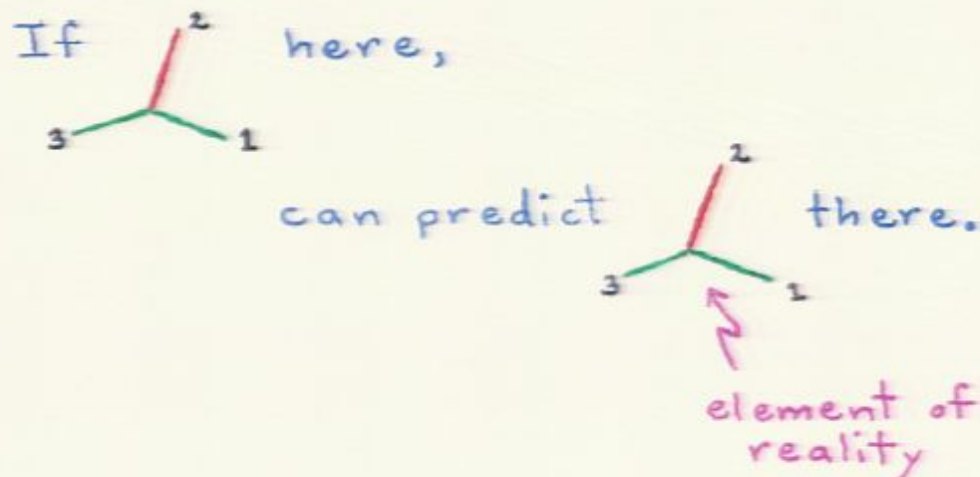 If 2 here,
3 1
can predict 2 there.
3 1
element of
reality